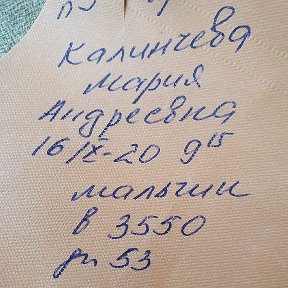 Калинчева
Мария
Андреевна
16/IX-20 9¹⁵
мальчик
в 3550
дл 53